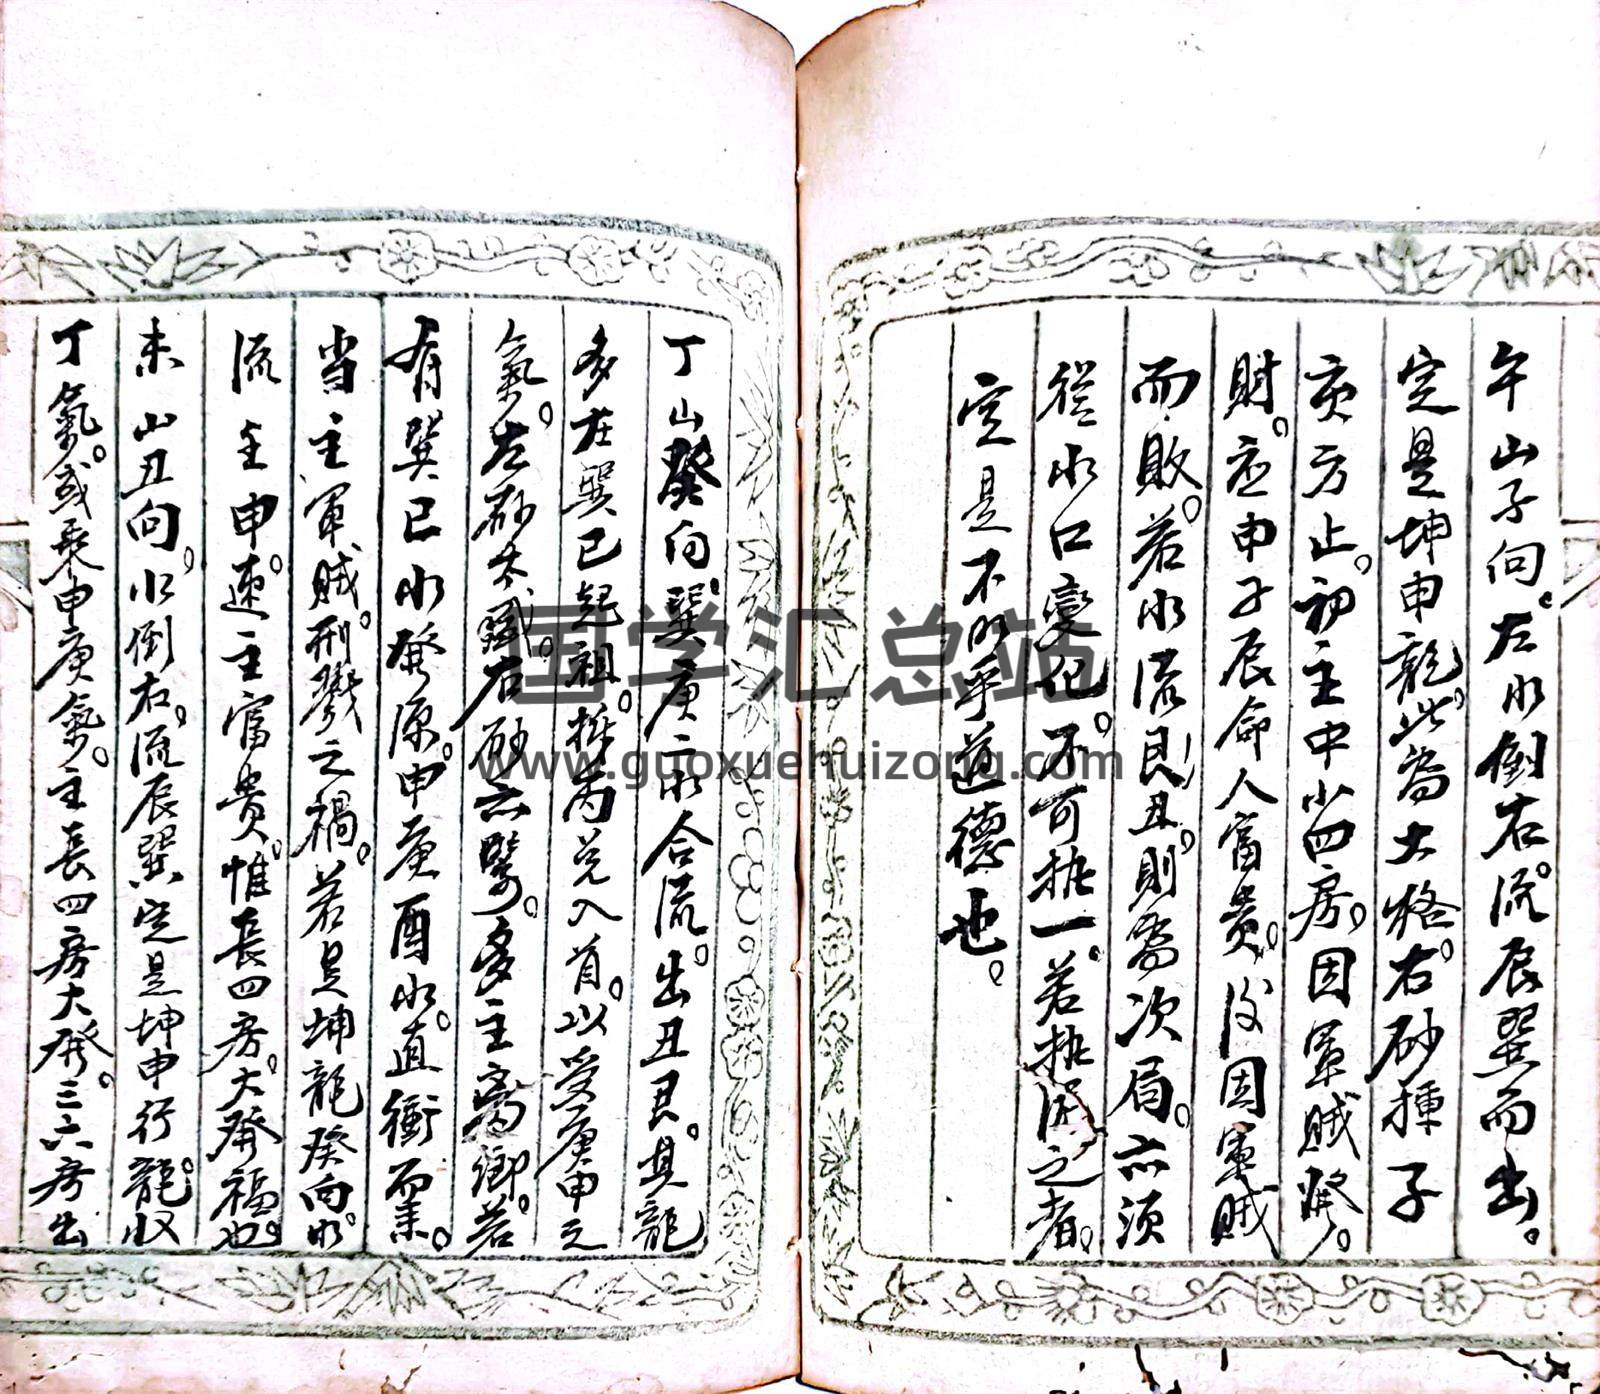 午山子向。左水倒右。流辰巽而出。
定是坤申龍。此为大格。右砂種子
亥方止。初主中小四房。因軍賊発。
財。应申子辰命人富贵。後因軍賊
而敗。若水流艮丑。則为次局。亦须
從水口变化。不可执一。若执泥之者。
定是不明乎道德也。
丁山癸向。巽庚二水合流。出丑艮。其龍
多在巽巳起祖。 丙兑入首。以受庚申之
氣。左砂 右砂亦 。多主离鄉。若
有巽巳水發源。申庚酉水。直衝而来。
当主軍賊。刑戮之禍。若是坤龍癸向。水
流主申。速主富贵。惟長四房。大發福也。
未山丑向。水倒右。流辰巽定是坤申行龍。収
丁氣。或乘申庚氣。主長四房大發。三六房出
国学汇总站
www.guoxuehuizong.com